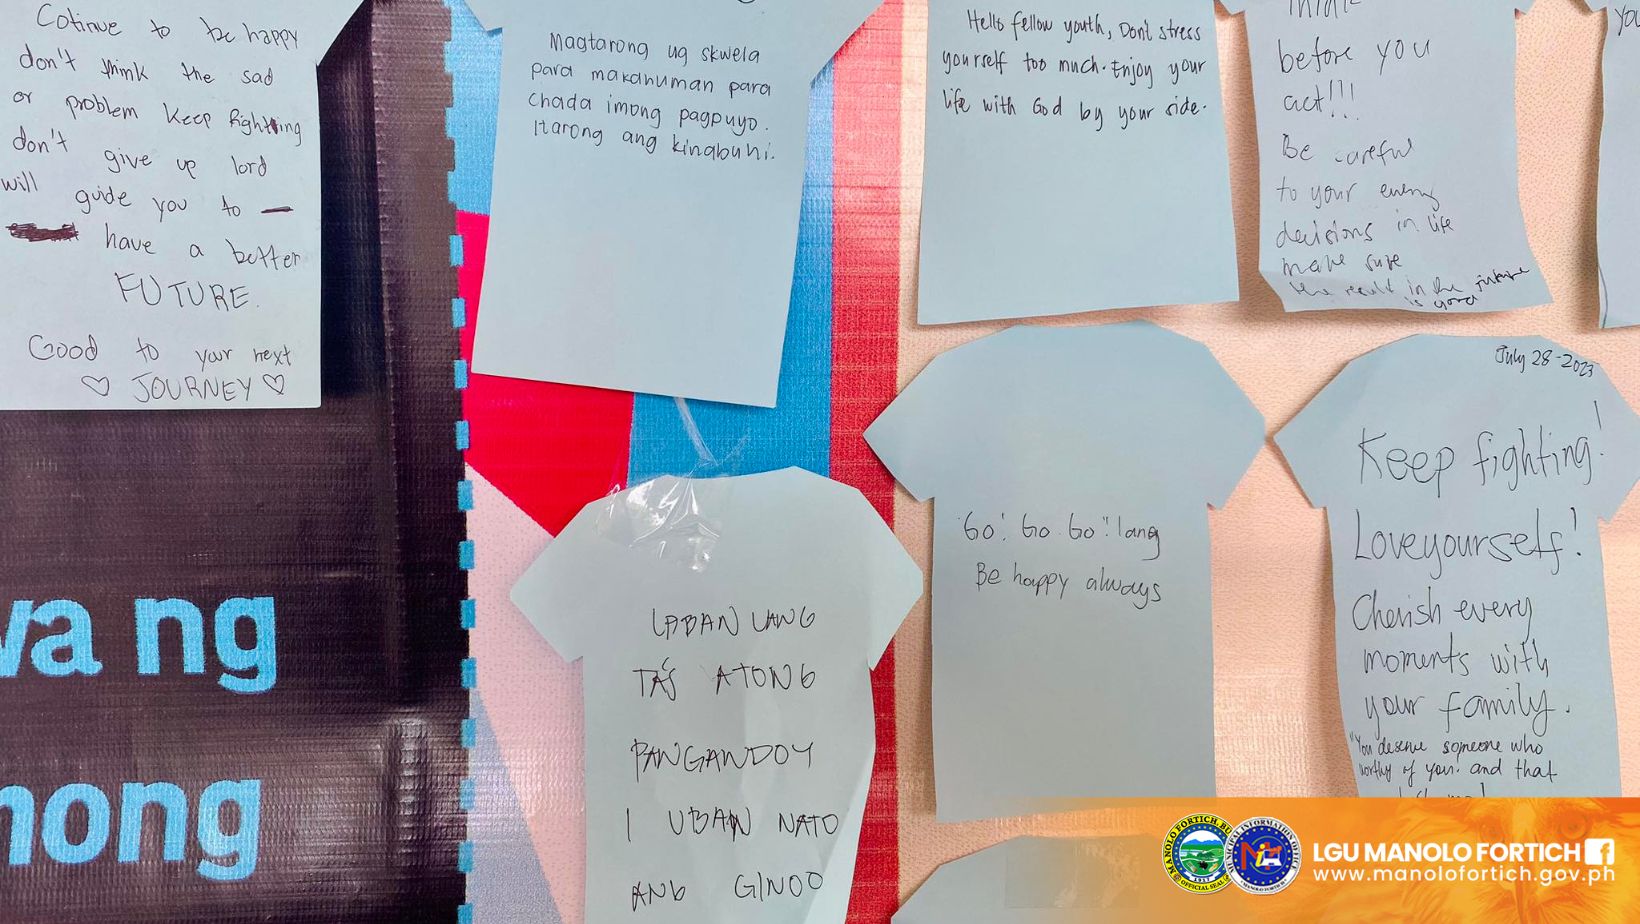 Cotinue to be happy
don't think the sad
or problem keep fighting
don't give up lord
will guide you to
have a better
FUTURE.
Good to your next
♡ JOURNEY ♡
Magtarong ug skwela
para makahuman para
chada imong pagpuyo.
Itarong ang kinabuhi.
Hello fellow youth, Don't stress
yourself too much. Enjoy your
life with God by your side.
Think
before you
act!!!
Be careful
to your every
decisions in life
make sure
the result in the future
is good
LABAN LANG
TAS ATONG
PANGANDOY
I UBAN NATO
ANG GINOO
Go! Go Go!! lang
Be happy always
July 28-2023
Keep fighting!
Loveyourself!
Cherish every
moments with
your family.
"You deserve someone who
worthy of you. and that
va ng
nong
MANOLO FORTICH BU
OFFICIAL SEAL
MUNICIPAL INFORMATION OFFICE
LGU MANOLO FORTICH
www.manolofortich.gov.ph